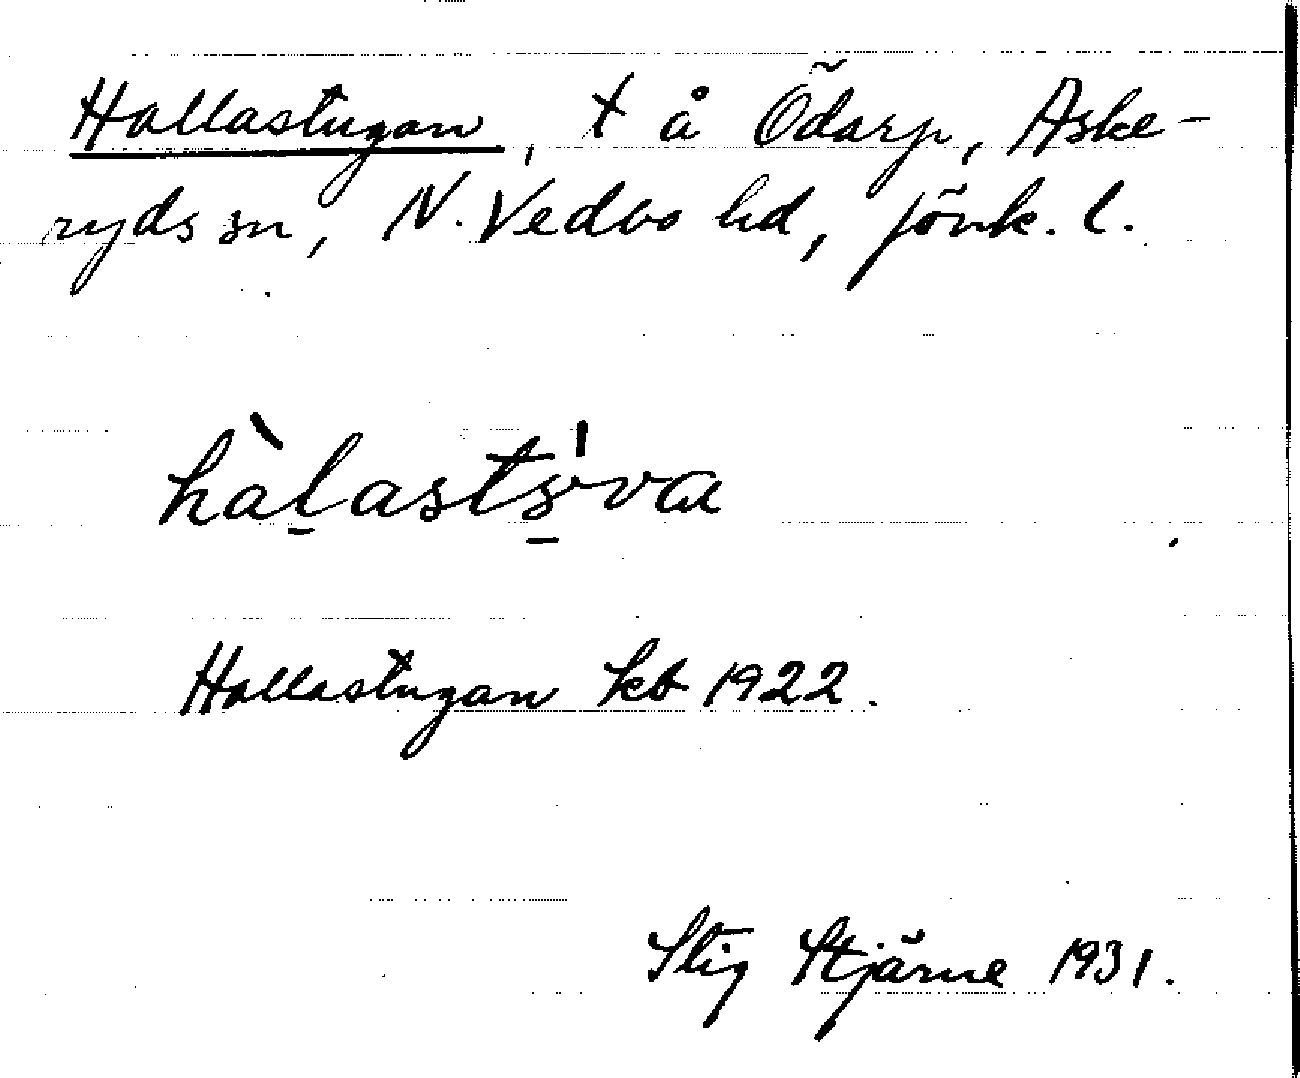 Hallastugan, t å Ödarp, Aske-
ryds sn, N. Vedbo hd, Jönk. l.
hàlastova
Hallastugan kb 1922.
Stig Stjärne 1931.